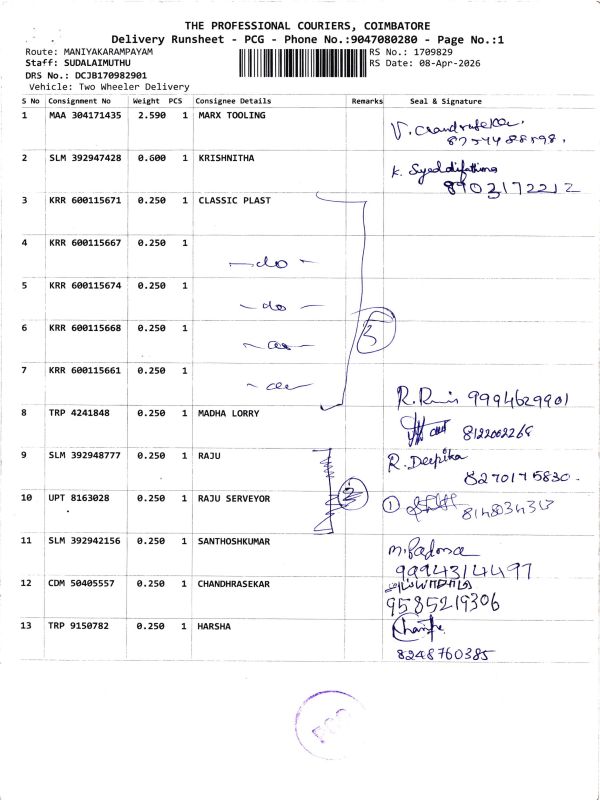 THE PROFESSIONAL COURIERS, COIMBATORE
Delivery Runsheet - PCG - Phone No.:9047080280 - Page No.:1
Route: MANIYAKARAMPAYAM
RS No.: 1709829
Staff: SUDALAIMUTHU
RS Date: 08-Apr-2026
DRS No.: DCJB170982901
Vehicle: Two Wheeler Delivery
S No Consignment No Weight PCS Consignee Details Remarks Seal & Signature
1 MAA 304171435 2.590 1 MARX TOOLING
2 SLM 392947428 0.600 1 KRISHNITHA
K. Syed
8903172212
3 KRR 600115671 0.250 1 CLASSIC PLAST
4 KRR 600115667 0.250 1
-do-
5 KRR 600115674 0.250 1
-do-
6 KRR 600115668 0.250 1
-do-
5
7 KRR 600115661 0.250 1
-do-
R. 9994629901
8 TRP 4241848 0.250 1 MADHA LORRY
8122002268
9 SLM 392948777 0.250 1 RAJU
R. Deepika
8270175830.
10 UPT 8163028 0.250 1 RAJU SERVEYOR
1
11 SLM 392942156 0.250 1 SANTHOSHKUMAR
9994314497
12 CDM 50405557 0.250 1 CHANDHRASEKAR
9585219306
13 TRP 9150782 0.250 1 HARSHA
8248760385